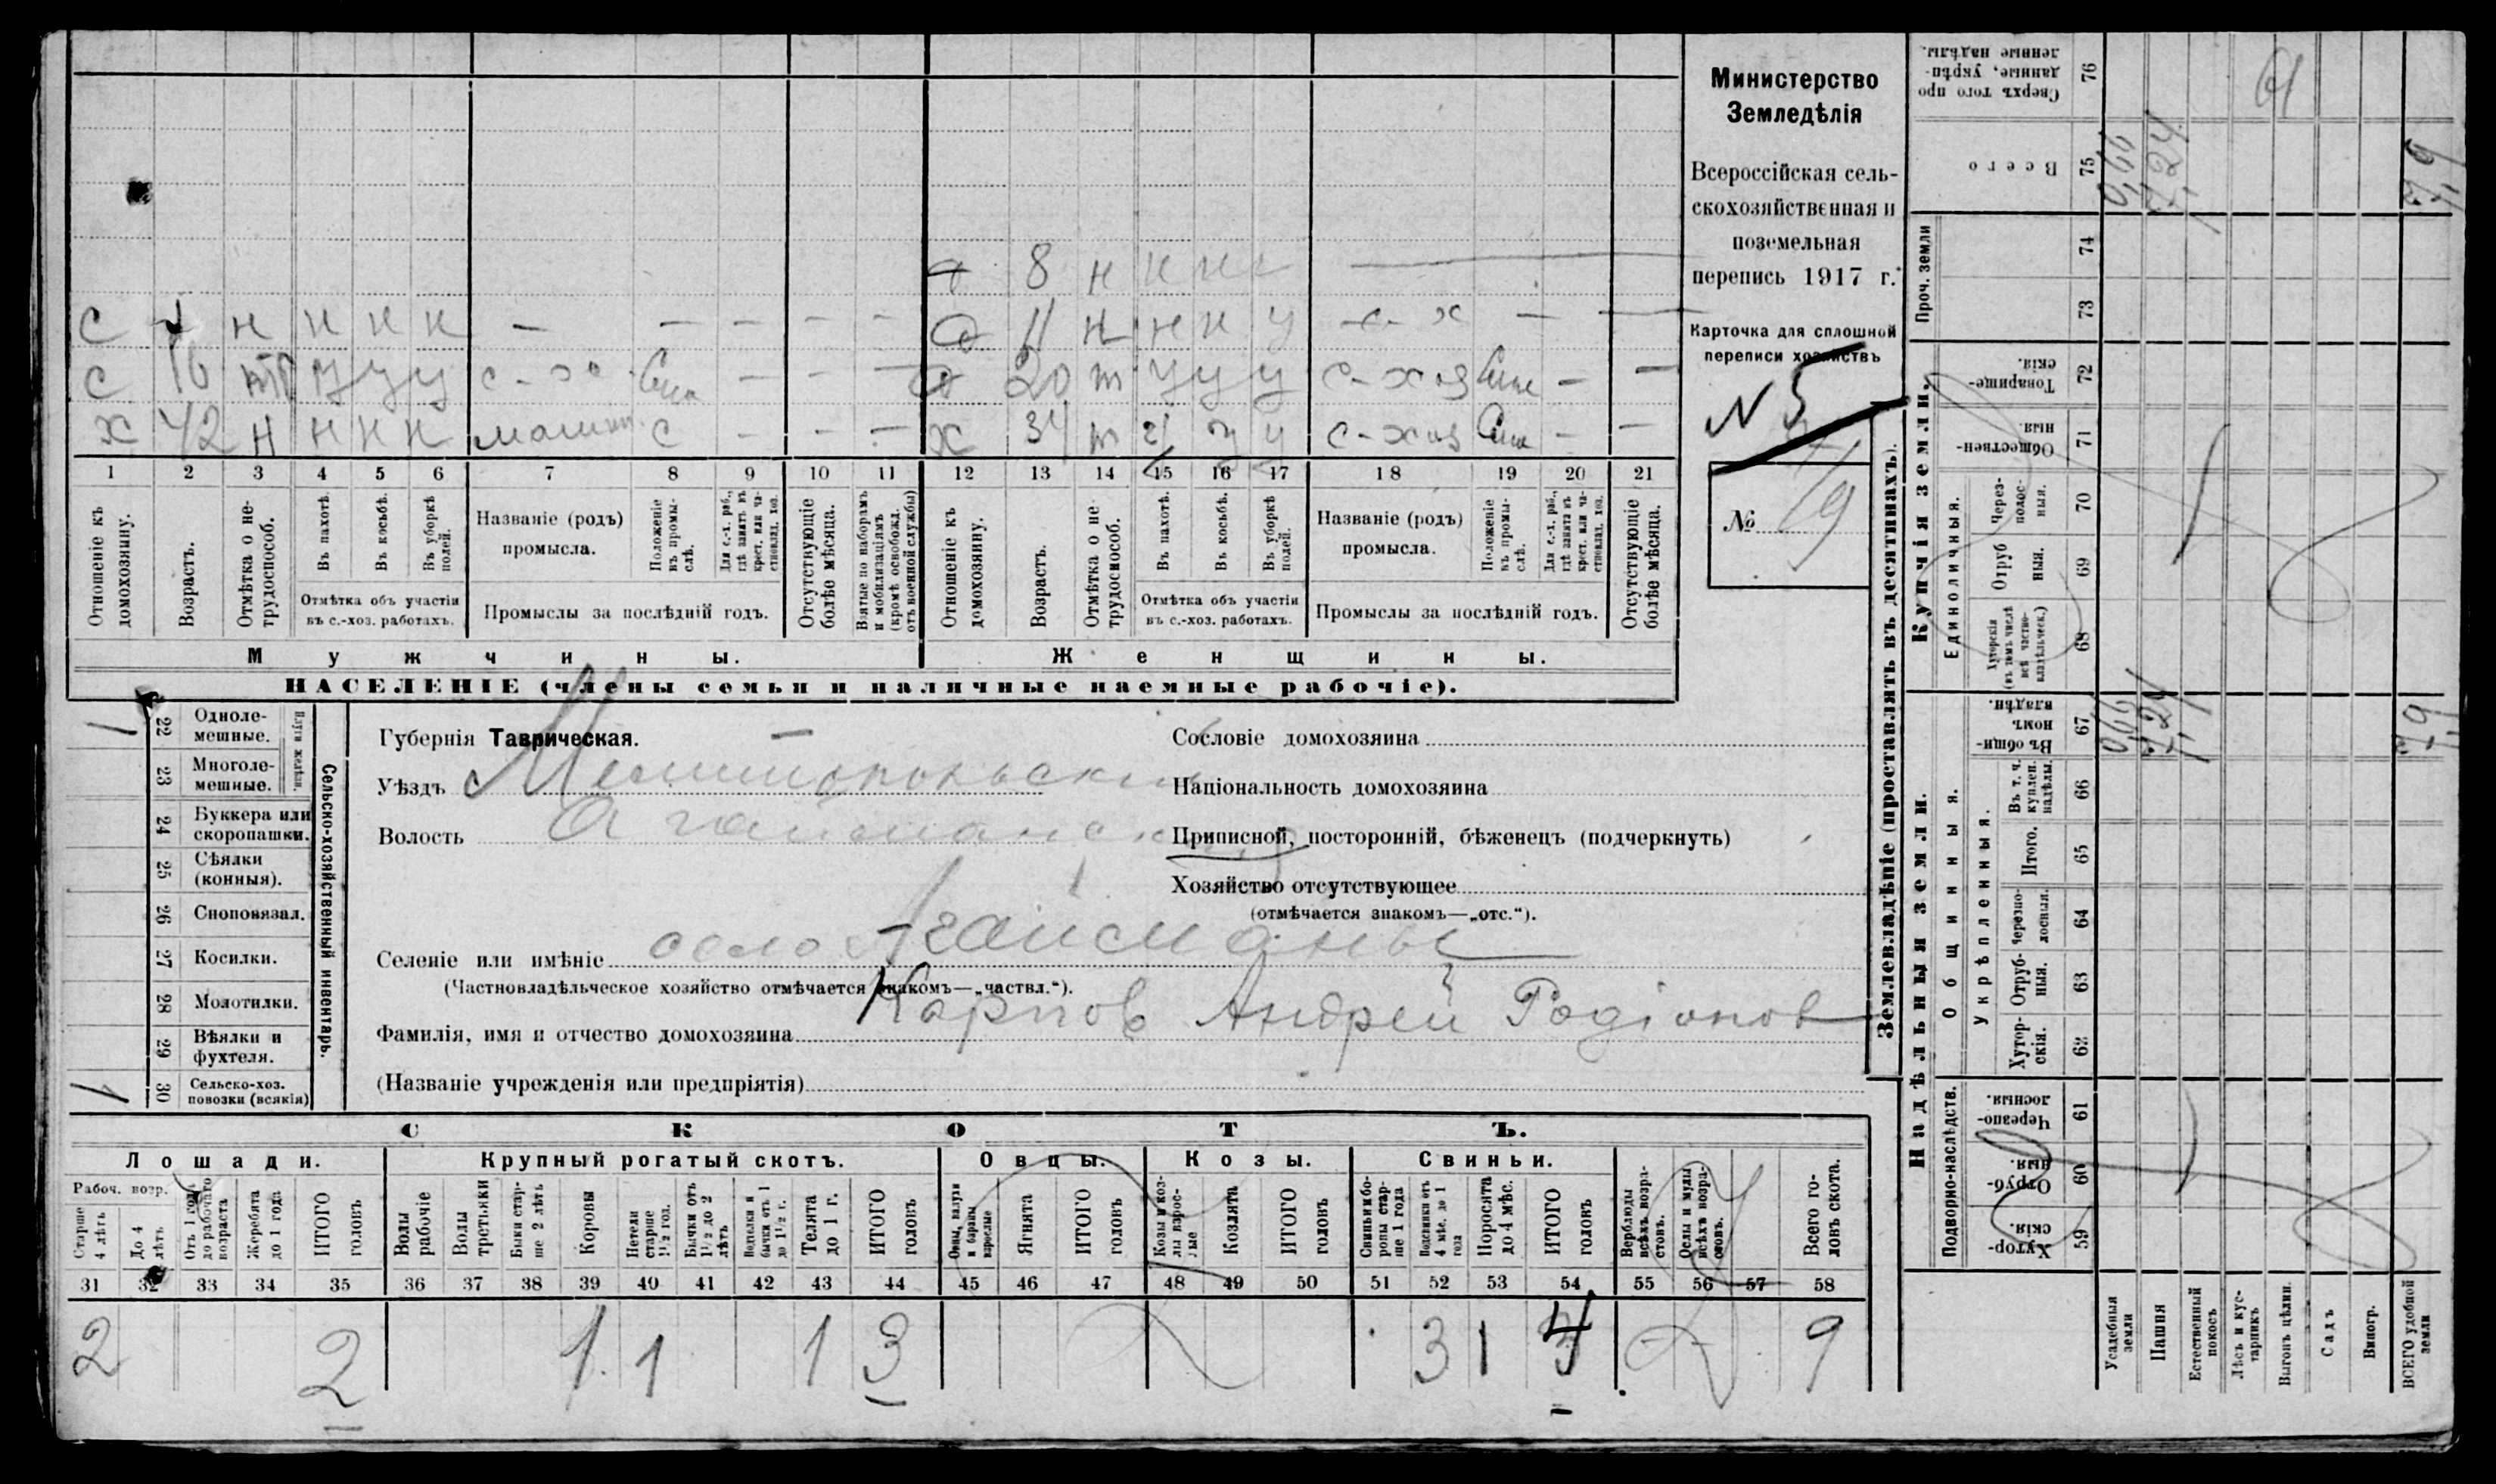 Министерство
Земледѣлія
Всероссійская сель-
скохозяйственная и
поземельная
перепись 1917 г.
Карточка для сплошной
переписи хозяйствъ
N 5
№ 19
8 н н н
С н н н н — — — — —
11 н н н у с-х —
С 16 у у у с-х — — —
20 т у у у с-хоз — —
х 42 н н н н с — — —
х 34 т у у у с-хоз — —
1 2 3 4 5 6 7 8 9 10 11 12 13 14 15 16 17 18 19 20 21
Отношеніе къ домохозяину.
Возрастъ.
Отмѣтка о не-трудоспособ.
Въ пахотѣ.
Въ косьбѣ.
Въ уборкѣ полей.
Отмѣтка объ участіи
въ с.-хоз. работахъ.
Названіе (родъ)
промысла.
Положеніе въ промы-слѣ.
Для с.-х. раб., гдѣ занятъ въ крест. или ча-стновлад. хоз.
Промыслы за послѣдній годъ.
Отсутствующіе болѣе мѣсяца.
Взятые по наборамъ и мобилизаціямъ (кромѣ освобожд. отъ военной службы)
Отношеніе къ домохозяину.
Возрастъ.
Отмѣтка о не трудоспособ.
Въ пахотѣ.
Въ косьбѣ.
Въ уборкѣ полей.
Отмѣтка объ участіи
въ с.-хоз. работахъ.
Названіе (родъ)
промысла.
Положеніе въ промы-слѣ.
Для с.-х. раб., гдѣ занята въ крест. или ча-стновлад. хоз.
Промыслы за послѣдній годъ.
Отсутствующіе болѣе мѣсяца.
Мужчины. Женщины.
НАСЕЛЕНІЕ (члены семьи и наличные наемные рабочіе).
1 22 Одноле-мешные.
23 Многоле-мешные.
Плуги желѣзн.
24 Буккера или скоропашки.
25 Сѣялки (конныя).
26 Сноповязал.
27 Косилки.
28 Молотилки.
29 Вѣялки и фухтеля.
1 30 Сельско-хоз. повозки (всякія)
Сельско-хозяйственный инвентарь.
Губернія Таврическая.
Уѣздъ Мелитопольскій
Волость Агайманская
Сословіе домохозяина
Національность домохозяина
Приписной, посторонній, бѣженецъ (подчеркнуть)
Хозяйство отсутствующее
(отмѣчается знакомъ—„отс.“).
Селеніе или имѣніе село Агайманы
(Частновладѣльческое хозяйство отмѣчается знакомъ—„частвл.“).
Фамилія, имя и отчество домохозяина Карпов Андрей Родіонов
(Названіе учрежденія или предпріятія)
СКОТЪ.
Лошади. Крупный рогатый скотъ. Овцы. Козы. Свиньи.
Рабоч. возр.
Старше 4 лѣтъ
До 4 лѣтъ
Отъ 1 года до рабочаго возраста
Жеребята до 1 года
ИТОГО головъ
Волы рабочіе
Волы третьяки
Быки стар-ше 2 лѣтъ
Коровы
Нетели старше 1½ год.
Бычки отъ 1½ до 2 лѣтъ
Подтелки и бычки отъ 1 до 1½ г.
Телята до 1 г.
ИТОГО головъ
Овцы, валухи и бараны взрослые
Ягнята
ИТОГО головъ
Козы и коз-лы взрос-лые
Козлята
ИТОГО головъ
Свиньи и бо-ровы стар-ше 1 года
Подсвинки отъ 4 мѣс. до 1 года
Поросята до 4 мѣс.
ИТОГО головъ
Верблюды всѣхъ возра-стовъ.
Ослы и мулы всѣхъ возра-стовъ.
Всего го-ловъ скота.
31 32 33 34 35 36 37 38 39 40 41 42 43 44 45 46 47 48 49 50 51 52 53 54 55 56 57 58
2 2 1 1 1 3 3 1 4 9
Землевладѣніе (проставлять въ десятинахъ).
Купчія земли.
Надѣльныя земли.
Сверхъ того про данные, укрѣп-ленные надѣлы. 76
Всего 75 0,66 7,24 7,9
Проч. земли 74
73
Товарище-скія. 72
Обществен-ныя. 71
Единоличныя.
Черезполос-ныя. 70
Отруб ныя. 69
Хуторскія (въ томъ числѣ всѣ частно-владѣльческ.) 68
Общинныя.
Въ общин-номъ владѣн. 67 0,66 7,24 7,9
Въ т. ч. куплен. надѣлы. 66
Укрѣпленныя.
Итого. 65
Черезпо-лосныя. 64
Отруб-ныя. 63
Хутор-скія. 62
Подворно-наслѣдств.
Черезпо-лосныя. 61
Отруб-ныя. 60
Хутор-скія. 59
Усадебныя земли
Пашня
Естественный покосъ
Лѣсъ и кус-тарникъ
Выгонъ цѣлин.
Садъ
Виногр.
ВСЕГО удобной земли